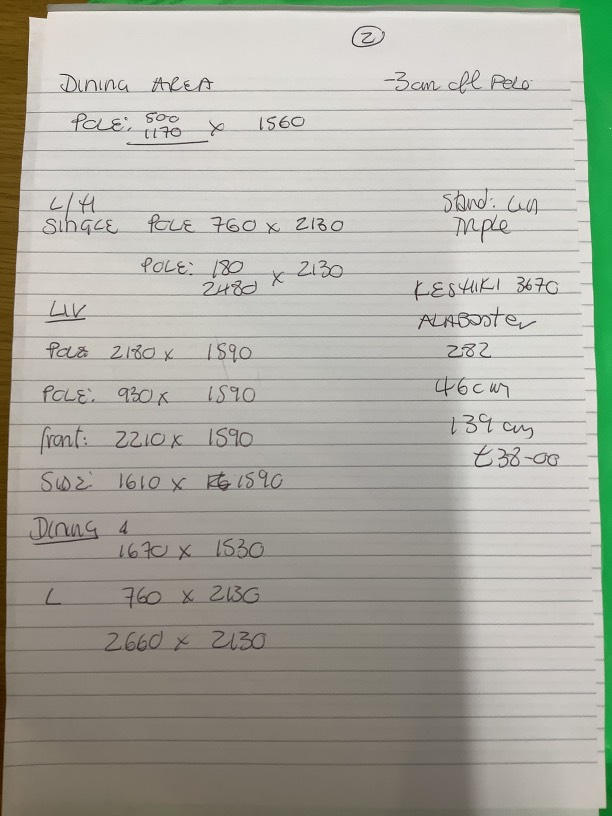 2
Dining AREA
-3cm off Pole
POLE: 500
1170 x 1560
L/H
SINGLE POLE 760 x 2130
Stand: Lin
Triple
POLE: 180
2480 x 2130
KESHIKI 3670
LIV
ALABaster
Pole 2180 x 1590
282
POLE: 930 x 1590
46cm
front: 2210 x 1590
139 cm
£38-00
Side: 1610 x 1590
Dining
1670 x 1530
L 760 x 2130
2660 x 2130